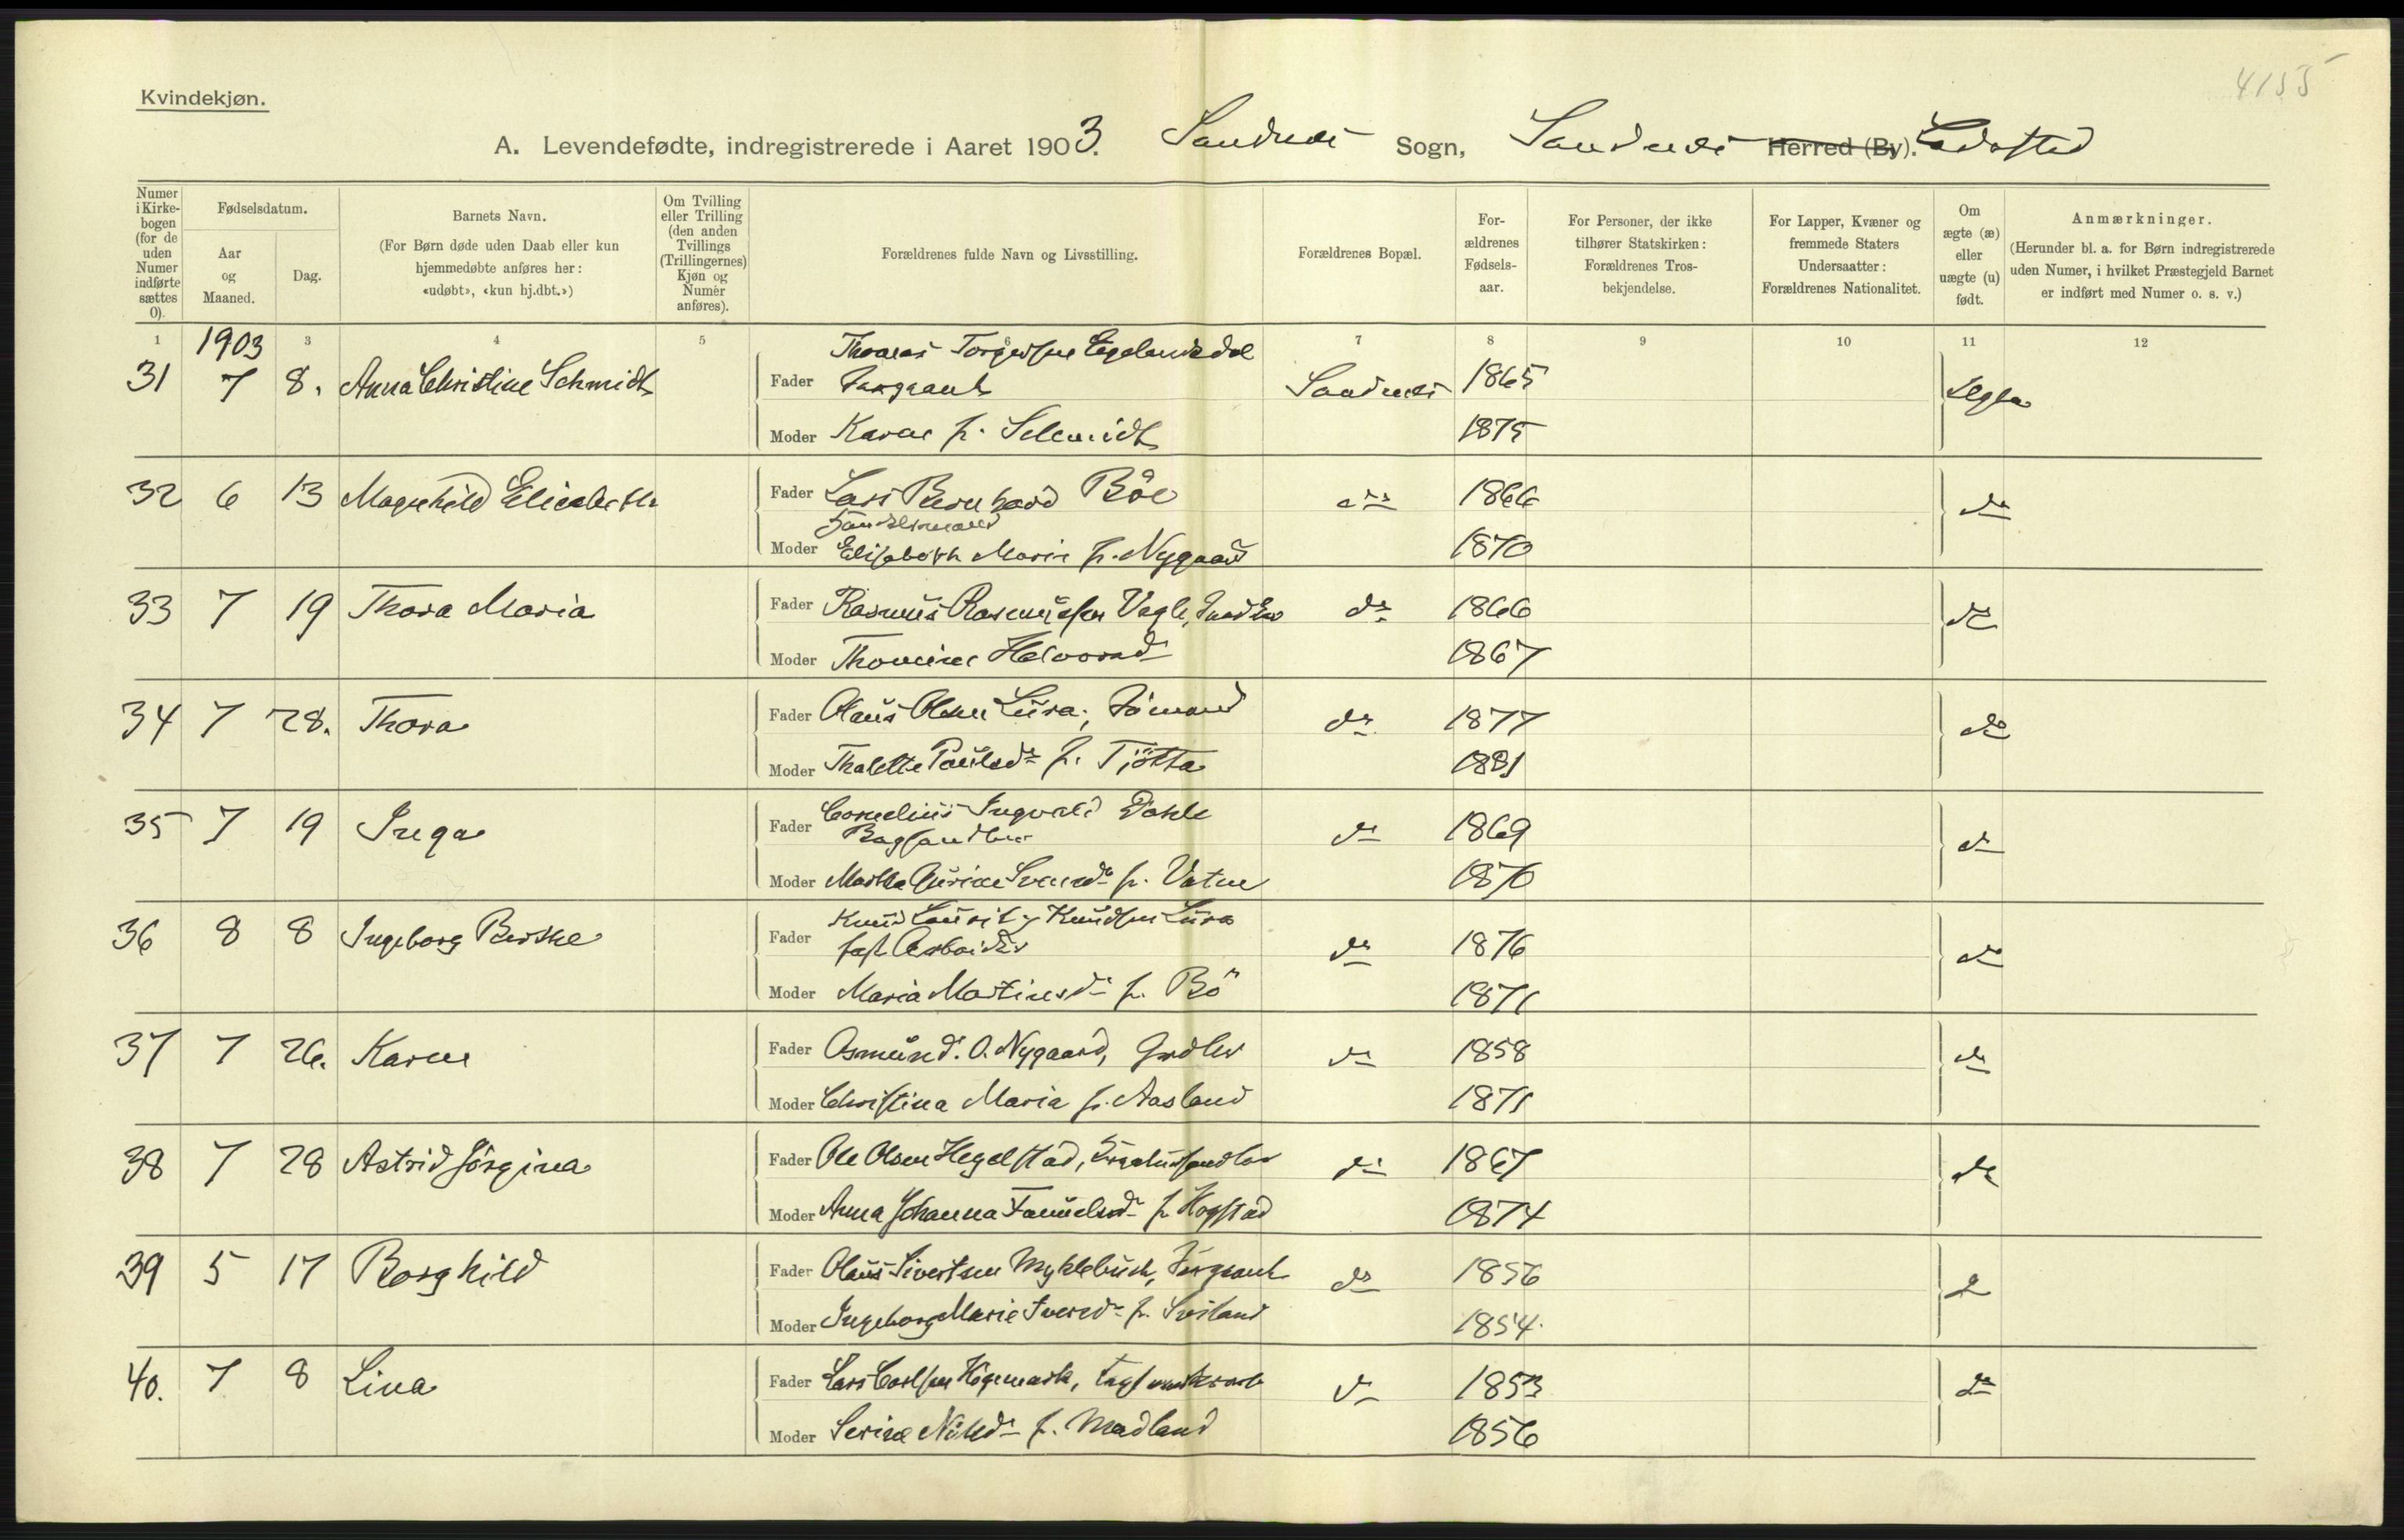 4155
Kvindekjøn.
A. Levendefødte, indregistrerede i Aaret 1903. Sandnes Sogn, Sandnes Herred (By). Ladested
Numer i Kirkebogen (for de uden Numer indførte sættes 0).
Fødselsdatum.
Aar og Maaned.
Dag.
Barnets Navn.
(For Børn døde uden Daab eller kun hjemmedøbte anføres her: «udøbt», «kun hj.dbt.»)
Om Tvilling eller Trilling (den anden Tvillings (Trillingernes) Kjøn og Numer anføres).
Forældrenes fulde Navn og Livsstilling.
Forældrenes Bopæl.
For-ældrenes Fødsels-aar.
For Personer, der ikke tilhører Statskirken: Forældrenes Tros-bekjendelse.
For Lapper, Kvæner og fremmede Staters Undersaatter: Forældrenes Nationalitet.
Om ægte (æ) eller uægte (u) født.
Anmærkninger.
(Herunder bl. a. for Børn indregistrerede uden Numer, i hvilket Præstegjeld Barnet er indført med Numer o. s. v.)
1 3 4 5 6 7 8 9 10 11 12
1903
31 7 8. Anna Christine Schmidt
Fader Thomas Torgersen Egelandsdal
Sergeant Sandnes 1865 Ægte
Moder Karen f. Schmidt 1875
32 6 13 Magnhild Elisabeth
Fader Lars Bernhard Böe do 1866 do
Handelsmand
Moder Elisabeth Marie f. Nygaard 1870
33 7 19 Thora Maria
Fader Rasmus Rasmussen Vagle, Snedker do 1866 do
Moder Thomine Halvorsd 1867
34 7 28. Thora
Fader Olaus Olsen Lura, Sömand do 1877 do
Moder Thalette Paulsdr f. Tjötta 1881
35 7 19 Inga
Fader Cornelius Ingvald Dahle
Baghandler do 1869 do
Moder Martha Gurine Svendsdr f. Vatne 1870
36 8 8 Ingeborg Berthe
Fader Knud Lauritz Knudsen Lura
fast Arbeider do 1876 do
Moder Maria Martinesdr f. Bö 1871
37 7 26. Karen
Fader Osmund O. Nygaard, do 1858 do
Moder Christina Maria f. Aasland 1871
38 7 28 Astrid Jörgina
Fader Ole Olsen Hegelstad, do 1867 do
Moder Anna Johanna f. Hogstad 1874
39 5 17 Borghild
Fader Olaus Sivertsen Myklebust, Sergeant do 1856 do
Moder Ingeborg Marie Iversdr f. Sviland 1854.
40. 7 8 Lina
Fader Lars Carlsen do 1853 do
Moder Serine Nilsdr f. Madland 1856